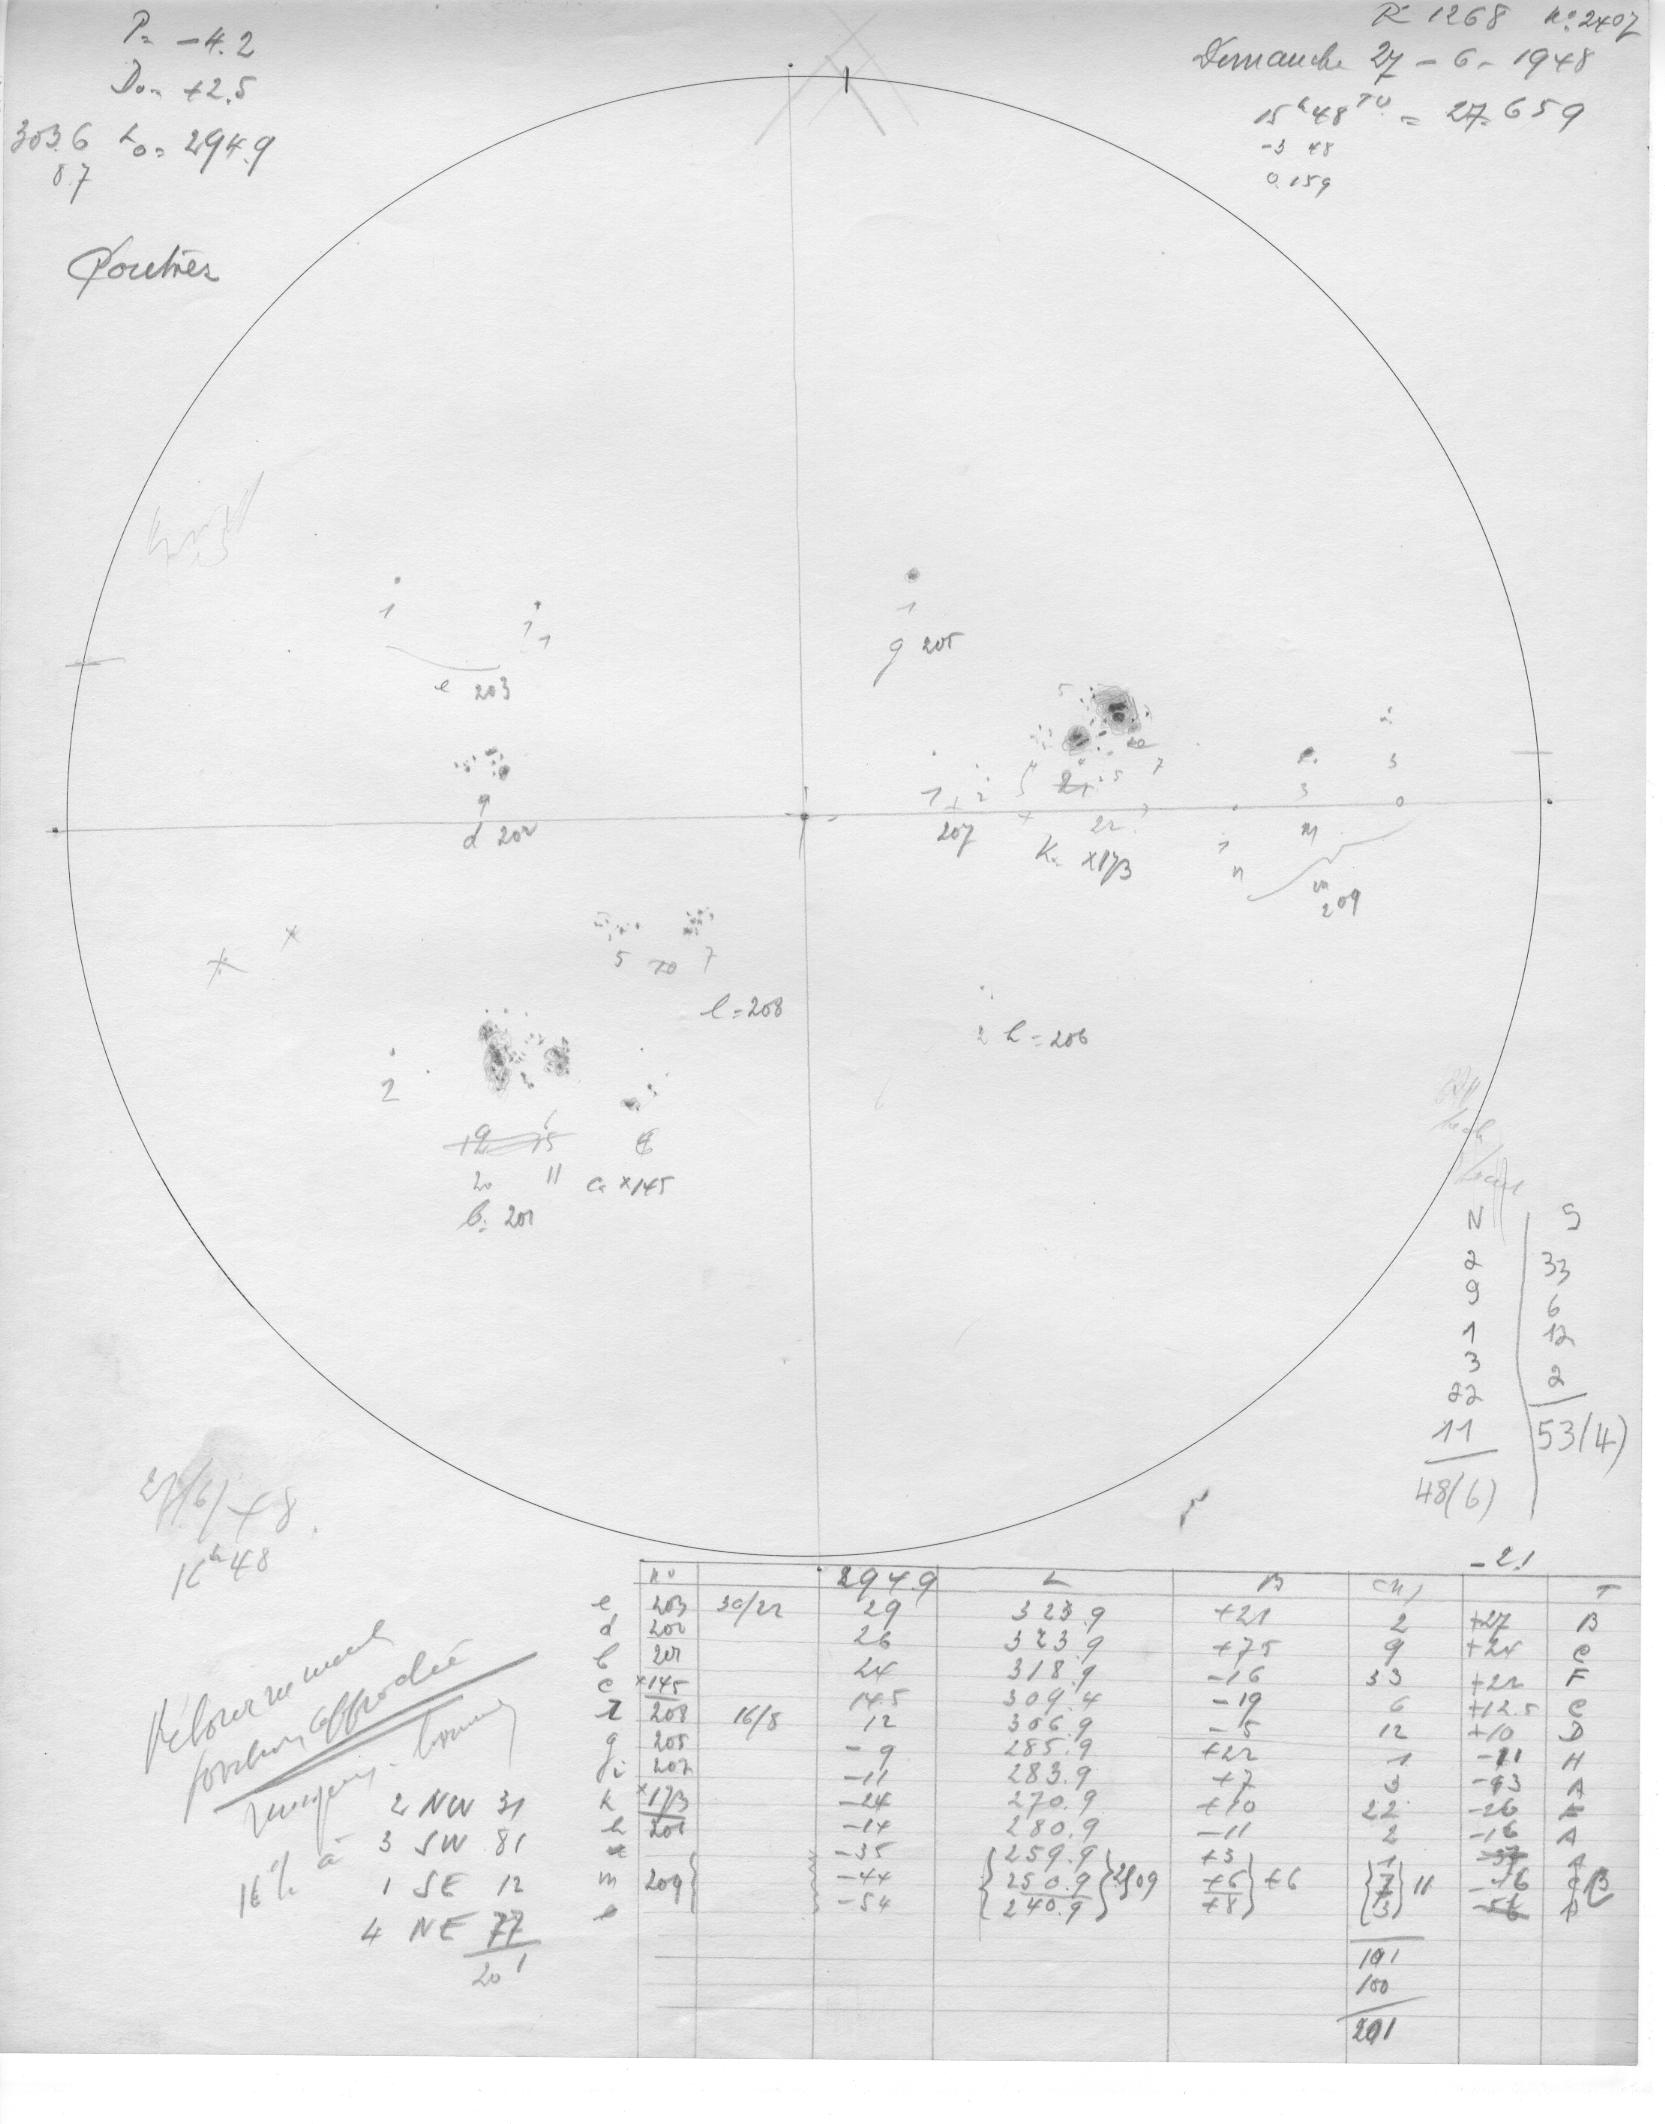 P= -4.2
D₀= +2.5
303.6 L₀= 294.9
8.7
R 1268 n° 2407
Dimanche 27-6-1948
15ʰ48 TU = 27.659
-3 48
0.159
1
1 1
e 203
1
g 205
5
9
d 202
1 2
207
22
K= ×173
7
3
3
0
m
1
n
209
5 10 7
l=208
2 h=206
2
20 11 c ×145
b= 201
N S
2 33
9 6
1 12
3 2
22
11 53(4)
48(6)
27/6/48
16ʰ48
-2.1
n° 294.9 L B T
e 203 30/22 29 323.9 +21 2 +27 B
d 202 26 323.9 +7.5 9 +24 C
b 201 24 318.9 -16 33 +22 F
c ×145 14.5 309.4 -19 6 +12.5 C
l 208 16/8 12 306.9 -5 12 +10 D
g 205 -9 285.9 +22 1 -11 H
207 -11 283.9 +7 3 -13 A
k ×173 -24 270.9 +10 22 -26 F
h 206 -14 280.9 -11 2 -16 A
-35 259.9 +3 1 -37 A
m 209 -44 250.9 +6 +6 7 11 -46 C B
-54 240.9 +8 3 -56 A
101
100
201
Retournement
2 NW 31
3 SW 81
1 SE 12
4 NE 77
201